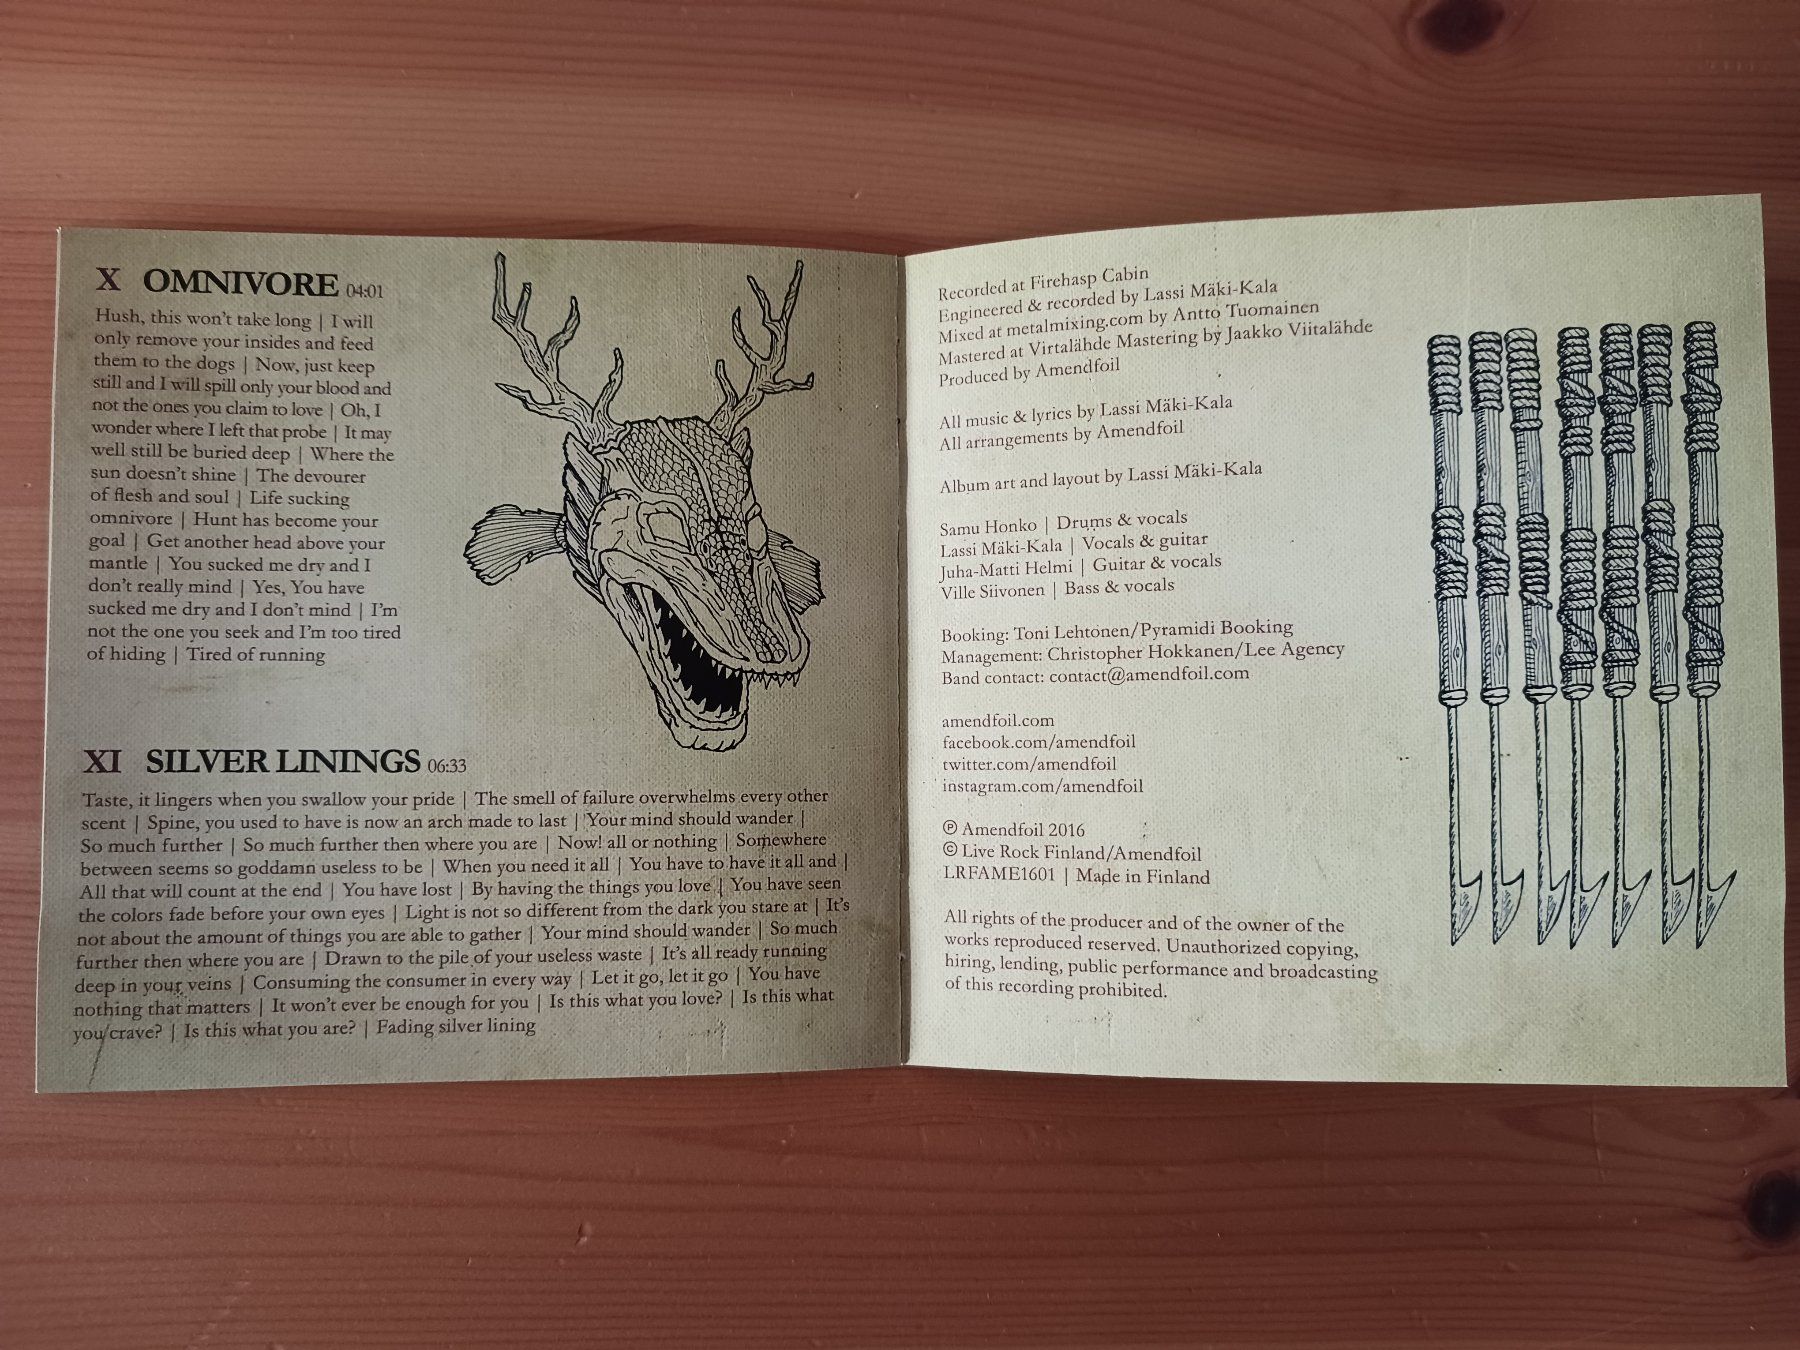 X OMNIVORE 04:01
Hush, this won't take long | I will
only remove your insides and feed
them to the dogs | Now, just keep
still and I will spill only your blood and
not the ones you claim to love | Oh, I
wonder where I left that probe | It may
well still be buried deep | Where the
sun doesn't shine | The devourer
of flesh and soul | Life sucking
omnivore | Hunt has become your
goal | Get another head above your
mantle | You sucked me dry and I
don't really mind | Yes, You have
sucked me dry and I don't mind | I'm
not the one you seek and I'm too tired
of hiding | Tired of running
XI SILVER LININGS 06:33
Taste, it lingers when you swallow your pride | The smell of failure overwhelms every other
scent | Spine, you used to have is now an arch made to last | Your mind should wander |
So much further | So much further then where you are | Now! all or nothing | Somewhere
between seems so goddamn useless to be | When you need it all | You have to have it all and |
All that will count at the end | You have lost | By having the things you love | You have seen
the colors fade before your own eyes | Light is not so different from the dark you stare at | It's
not about the amount of things you are able to gather | Your mind should wander | So much
further then where you are | Drawn to the pile of your useless waste | It's all ready running
deep in your veins | Consuming the consumer in every way | Let it go, let it go | You have
nothing that matters | It won't ever be enough for you | Is this what you love? | Is this what
you crave? | Is this what you are? | Fading silver lining
Recorded at Firehasp Cabin
Engineered & recorded by Lassi Mäki-Kala
Mixed at metalmixing.com by Antto Tuomainen
Mastered at Virtalähde Mastering by Jaakko Viitalähde
Produced by Amendfoil
All music & lyrics by Lassi Mäki-Kala
All arrangements by Amendfoil
Album art and layout by Lassi Mäki-Kala
Samu Honko | Drums & vocals
Lassi Mäki-Kala | Vocals & guitar
Juha-Matti Helmi | Guitar & vocals
Ville Siivonen | Bass & vocals
Booking: Toni Lehtonen/Pyramidi Booking
Management: Christopher Hokkanen/Lee Agency
Band contact: contact@amendfoil.com
amendfoil.com
facebook.com/amendfoil
twitter.com/amendfoil
instagram.com/amendfoil
℗ Amendfoil 2016
© Live Rock Finland/Amendfoil
LRFAME1601 | Made in Finland
All rights of the producer and of the owner of the
works reproduced reserved. Unauthorized copying,
hiring, lending, public performance and broadcasting
of this recording prohibited.